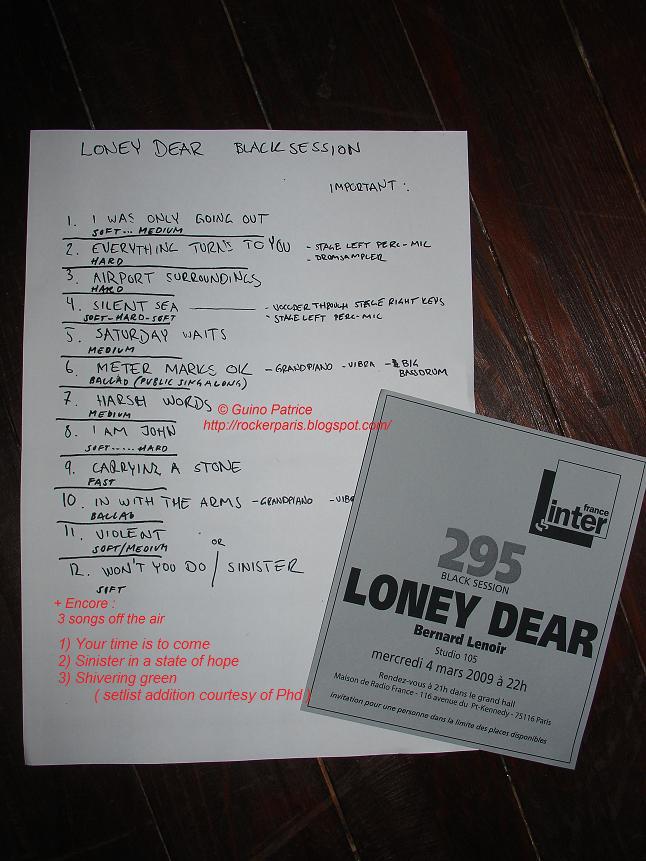 LONEY DEAR BLACK SESSION
IMPORTANT:
1. I WAS ONLY GOING OUT
SOFT... MEDIUM
2. EVERYTHING TURNS TO YOU - STAGE LEFT PERC-MIC
HARD - DROMSAMPLER
3. AIRPORT SURROUNDINGS
HARD
4. SILENT SEA - VOCODER THROUGH STAGE RIGHT KEYS
SOFT-HARD-SOFT - STAGE LEFT PERC-MIC
5. SATURDAY WAITS
MEDIUM
6. METER MARKS OK - GRANDPIANO - VIBRA - BIG
BALLAD (PUBLIC SINGALONG) BASDRUM
7. HARSH WORDS
MEDIUM
© Guino Patrice
http://rockerparis.blogspot.com/
8. I AM JOHN
SOFT......HARD
9. CARRYING A STONE
FAST
10. IN WITH THE ARMS - GRANDPIANO - VIBR
BALLAD
11. VIOLENT
SOFT/MEDIUM OR
12. WON'T YOU DO / SINISTER
SOFT
+ Encore :
3 songs off the air
1) Your time is to come
2) Sinister in a state of hope
3) Shivering green
( setlist addition courtesy of Phd )
france
inter
295
BLACK SESSION
LONEY DEAR
Bernard Lenoir
Studio 105
mercredi 4 mars 2009 à 22h
Rendez-vous à 21h dans le grand hall
Maison de Radio France - 116 avenue du Pt-Kennedy - 75116 Paris
invitation pour une personne dans la limite des places disponibles